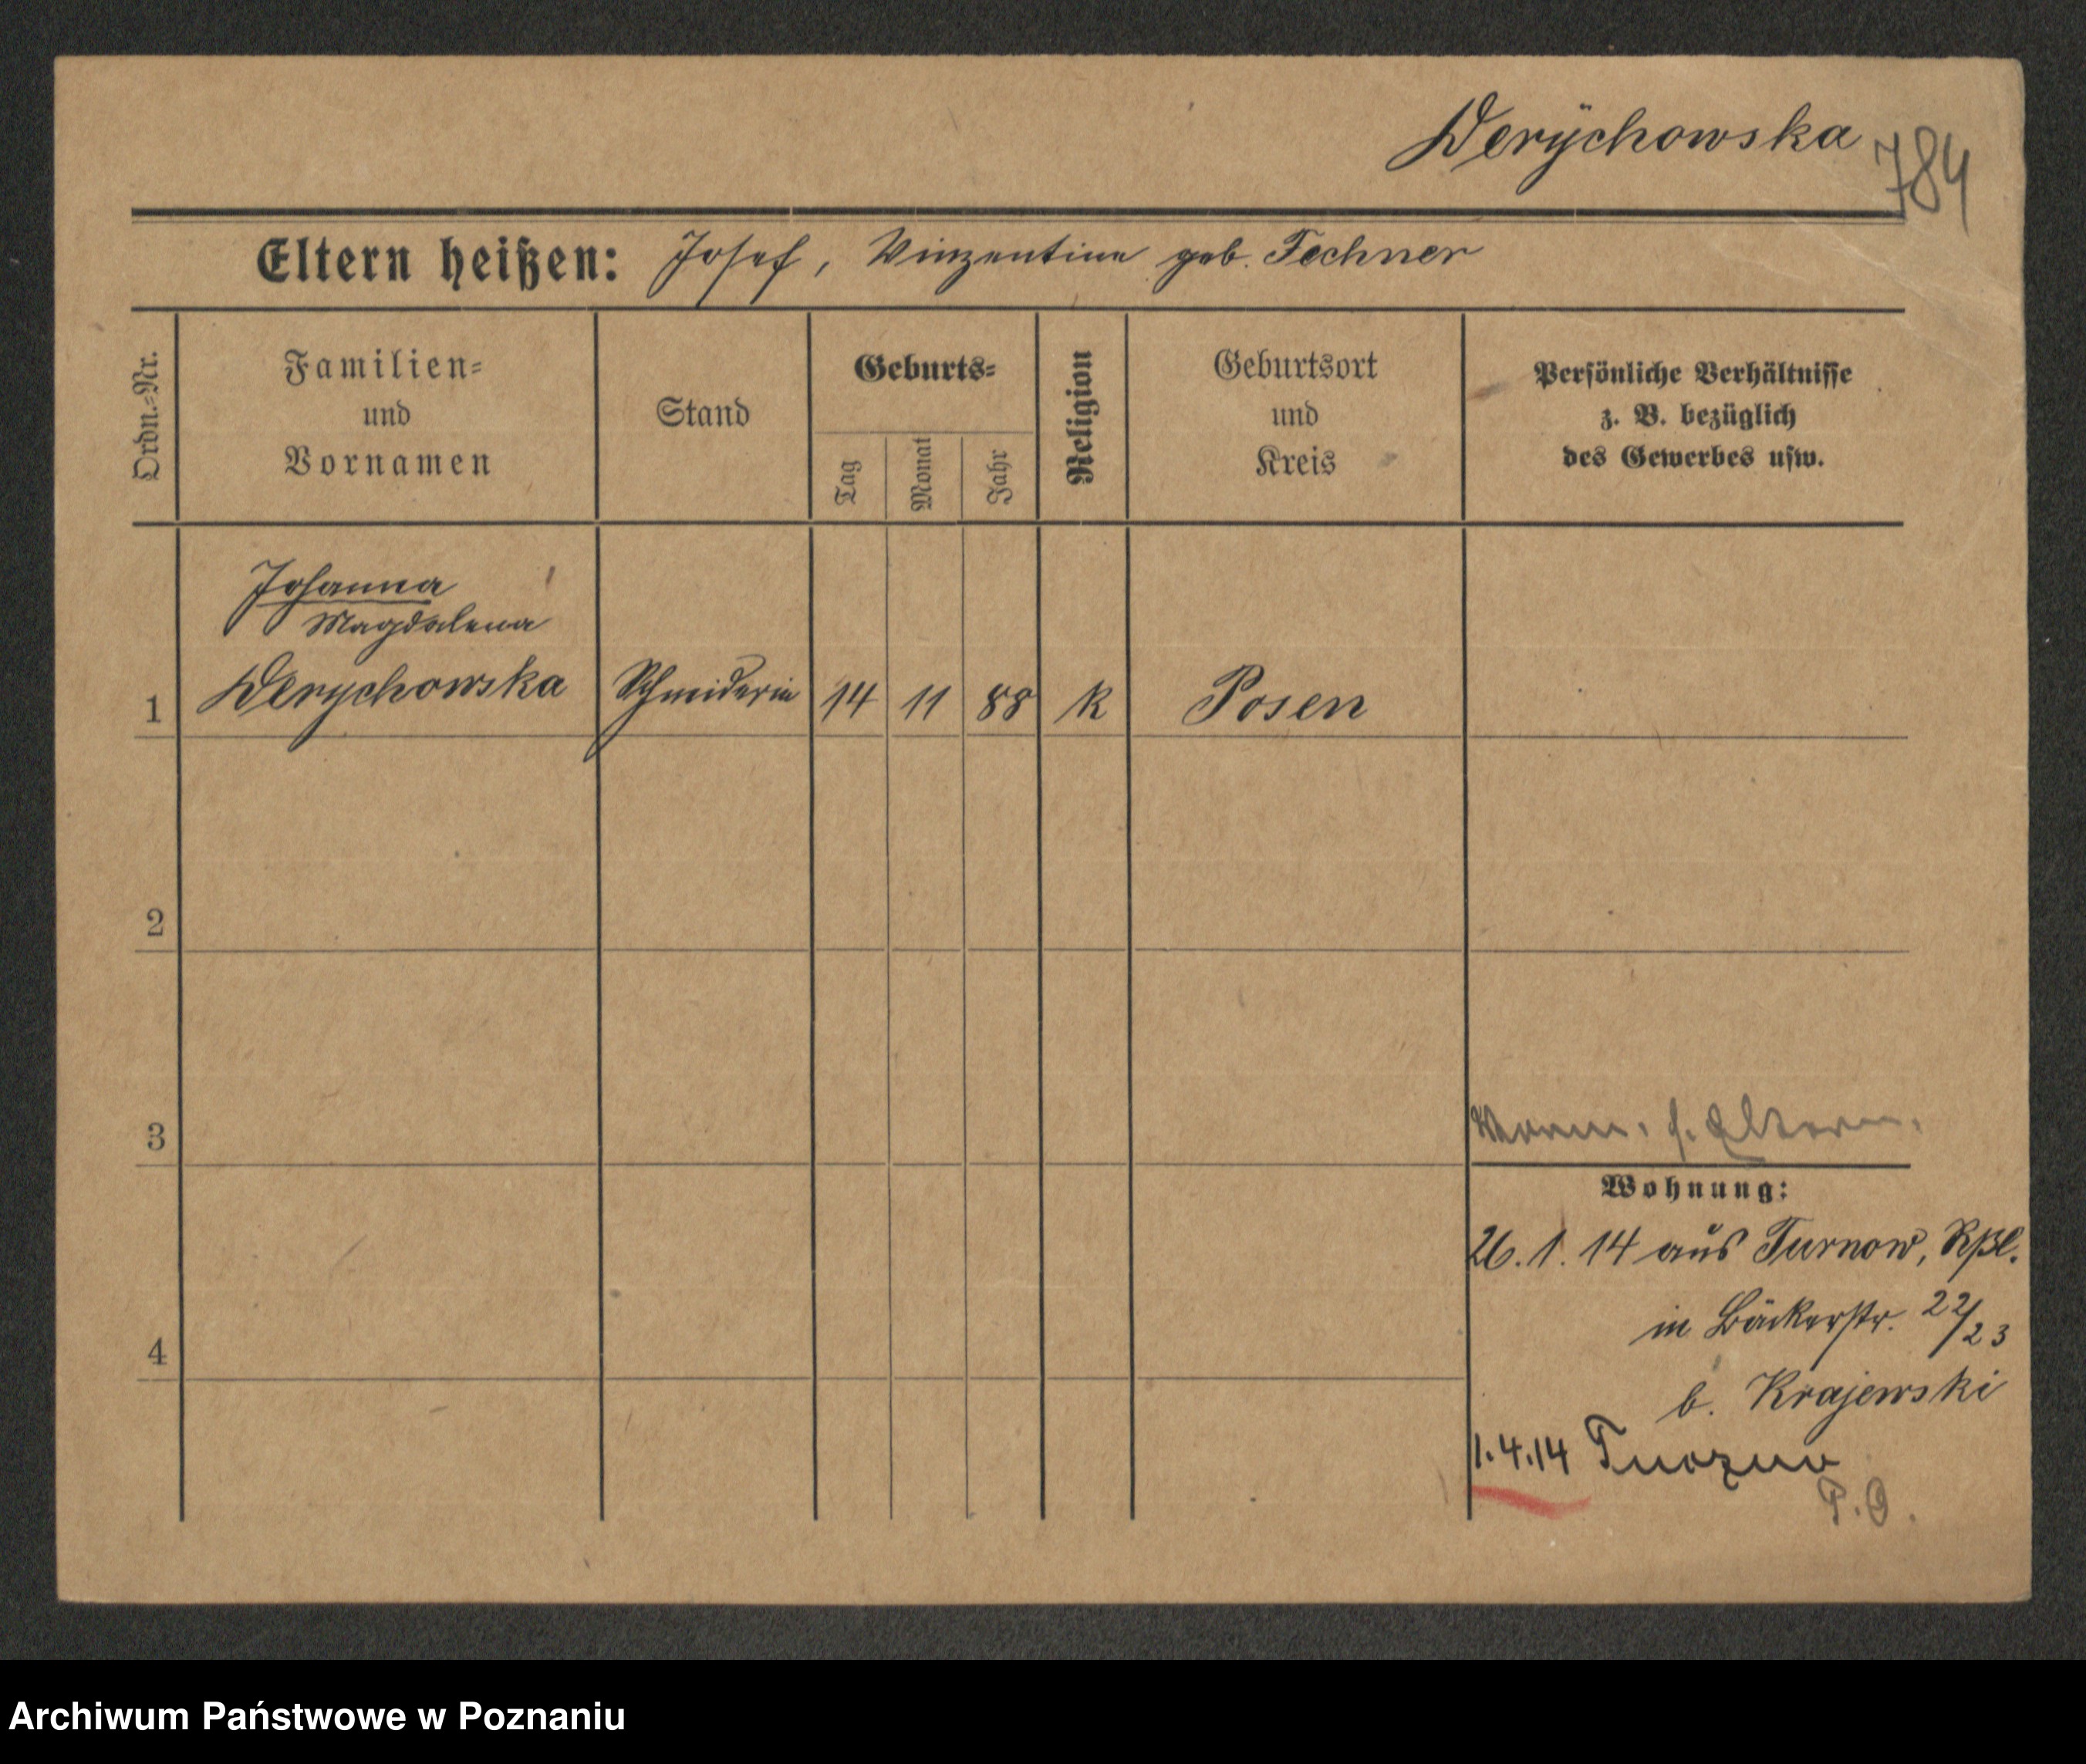 Derÿchowska
784
Eltern heißen: Josef, Vinzentine geb. Fechner
Ordn.-Nr.
Familien-
und
Vornamen
Stand
Geburts-
Tag
Monat
Jahr
Religion
Geburtsort
und
Kreis
Persönliche Verhältnisse
z. B. bezüglich
des Gewerbes usw.
Johanna
Magdalena
1 Derychowska Schneiderin 14 11 88 k Posen
2
3
s. Eltern.
Wohnung:
26. 1. 14 aus Turnow,
in Bäckerstr. 22/23
4
b. Krajewski
1.4.14
P.O.
Archiwum Państwowe w Poznaniu